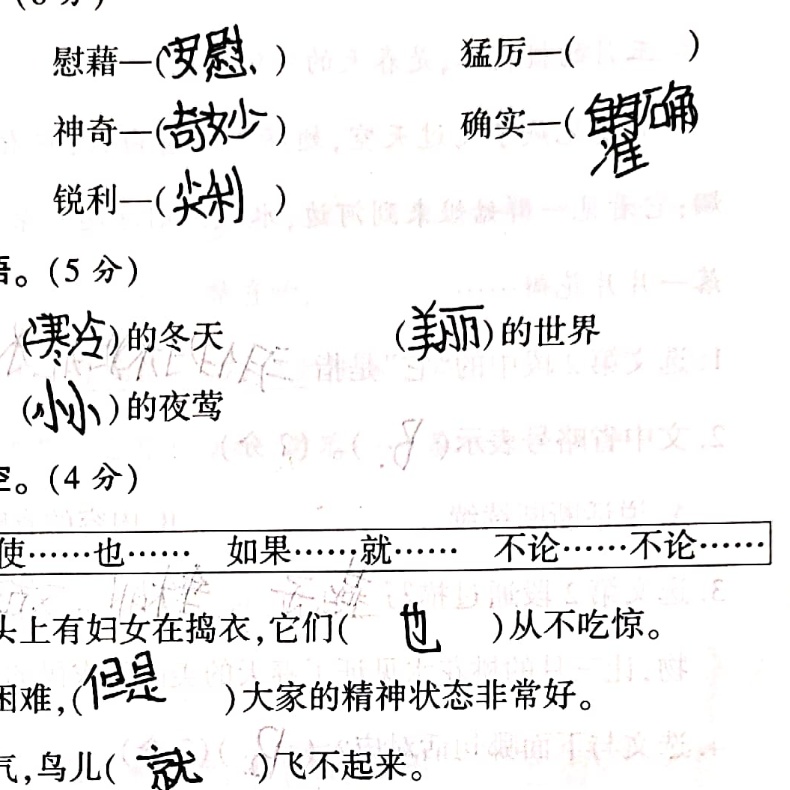 (6分)
慰藉—(安慰) 猛厉—( )
神奇—(奇妙) 确实—(的确)
锐利—(尖利)
语。(5分)
(寒冷)的冬天 (美丽)的世界
(小小)的夜莺
空。(4分)
使……也…… 如果……就…… 不论……不论……
头上有妇女在捣衣,它们( 也 )从不吃惊。
困难,(但是 )大家的精神状态非常好。
气,鸟儿( 就 )飞不起来。